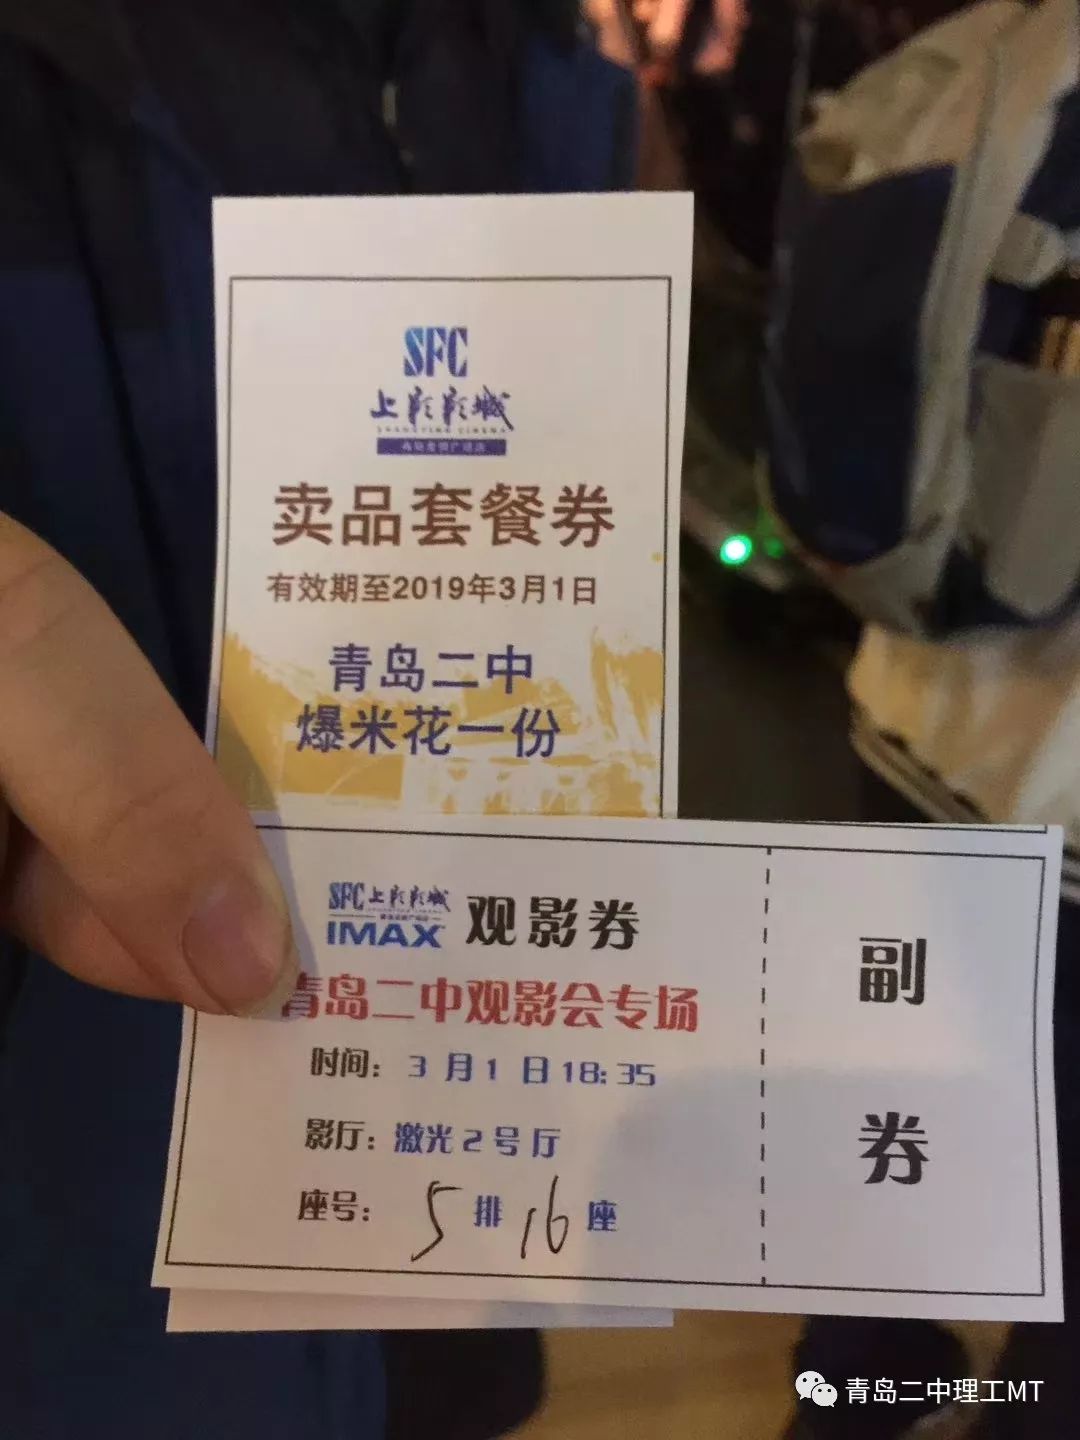 SFC
上影影城
SHANGYING CINEMA
卖品套餐券
有效期至2019年3月1日
青岛二中
爆米花一份
SFC上影影城
IMAX 观影券
青岛二中观影会专场
时间: 3 月 1 日 18:35
影厅: 激光 2 号 厅
座号: 5 排 16 座
副
券
青岛二中理工MT